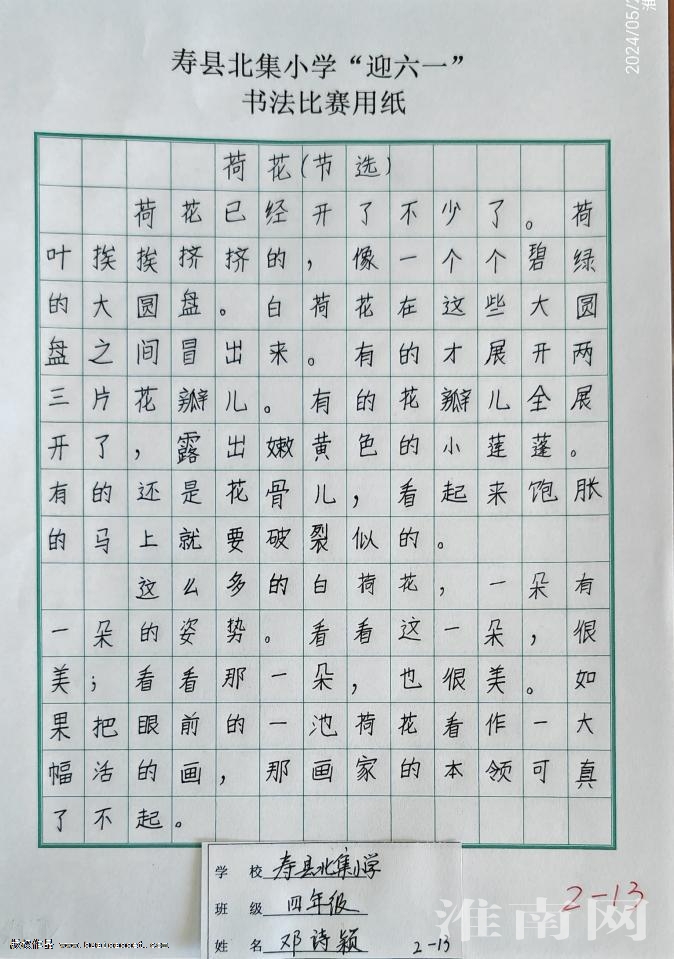 2024/05/2
淮
寿县北集小学“迎六一”
书法比赛用纸
荷花(节选)
荷花已经开了不少了。荷
叶挨挨挤挤的，像一个个碧绿
的大圆盘。白荷花在这些大圆
盘之间冒出来。有的才展开两
三片花瓣儿。有的花瓣儿全展
开了，露出嫩黄色的小莲蓬。
有的还是花骨儿，看起来饱胀
的马上就要破裂似的。
这么多的白荷花，一朵有
一朵的姿势。看看这一朵，很
美；看看那一朵，也很美。如
果把眼前的一池荷花看作一大
幅活的画，那画家的本领可真
了不起。
学校 寿县北集小学
班级 四年级
姓名 邓诗颖 2-13
2-13
淮南网